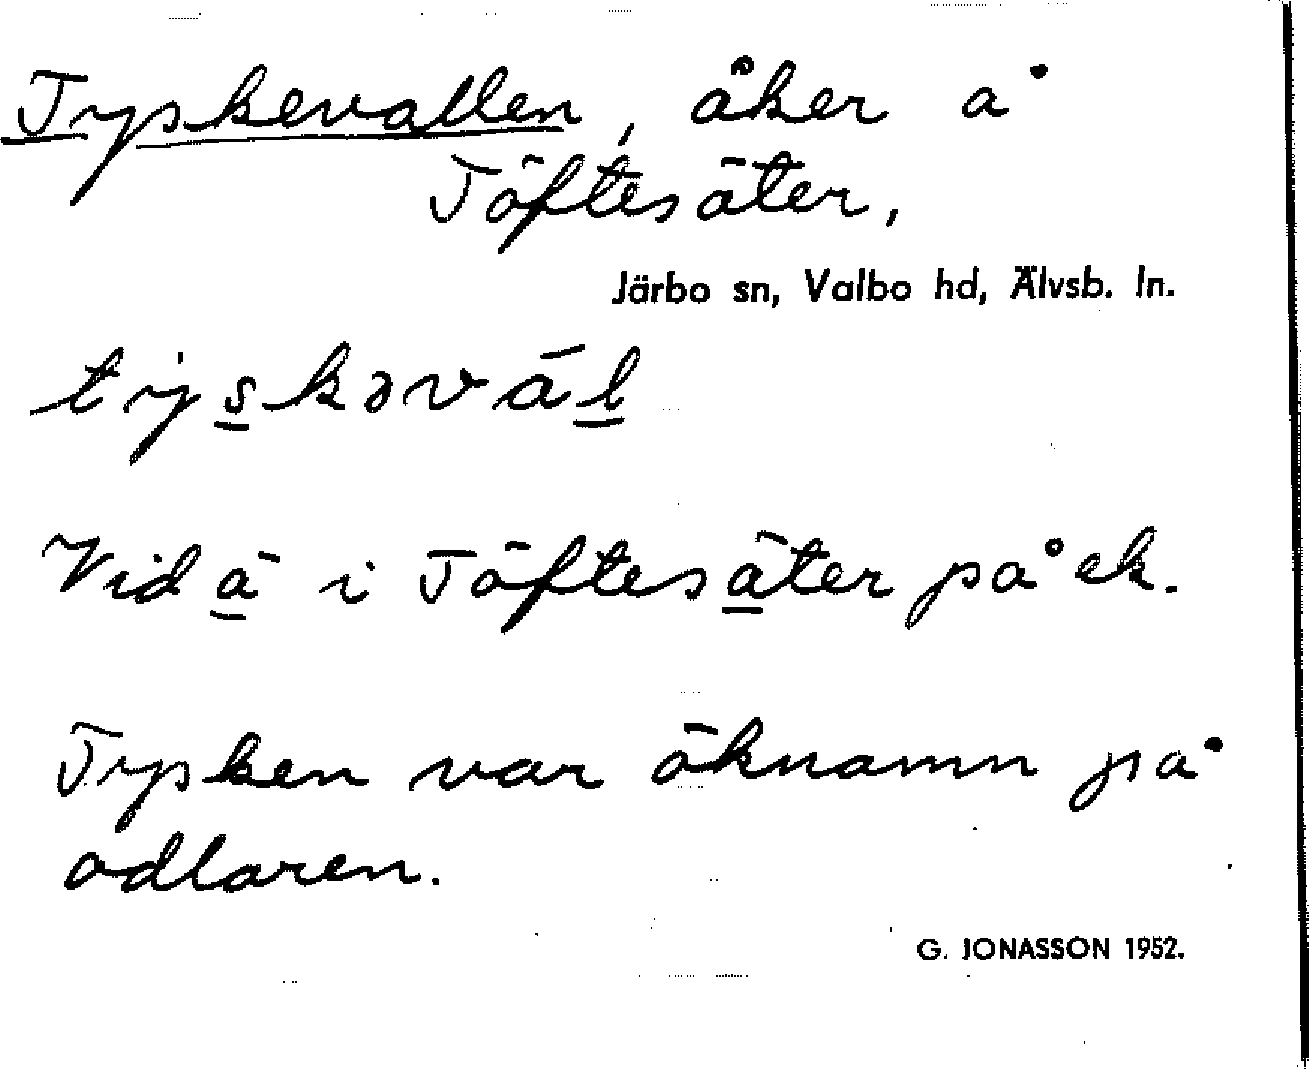 Tyskevallen, åker å
Töftesäter,
Järbo sn, Valbo hd, Älvsb. ln.
tyskəvāl
Vid ä i Töftesäter på ek.
Tysken var öknamn på
odlaren.
G. JONASSON 1952.